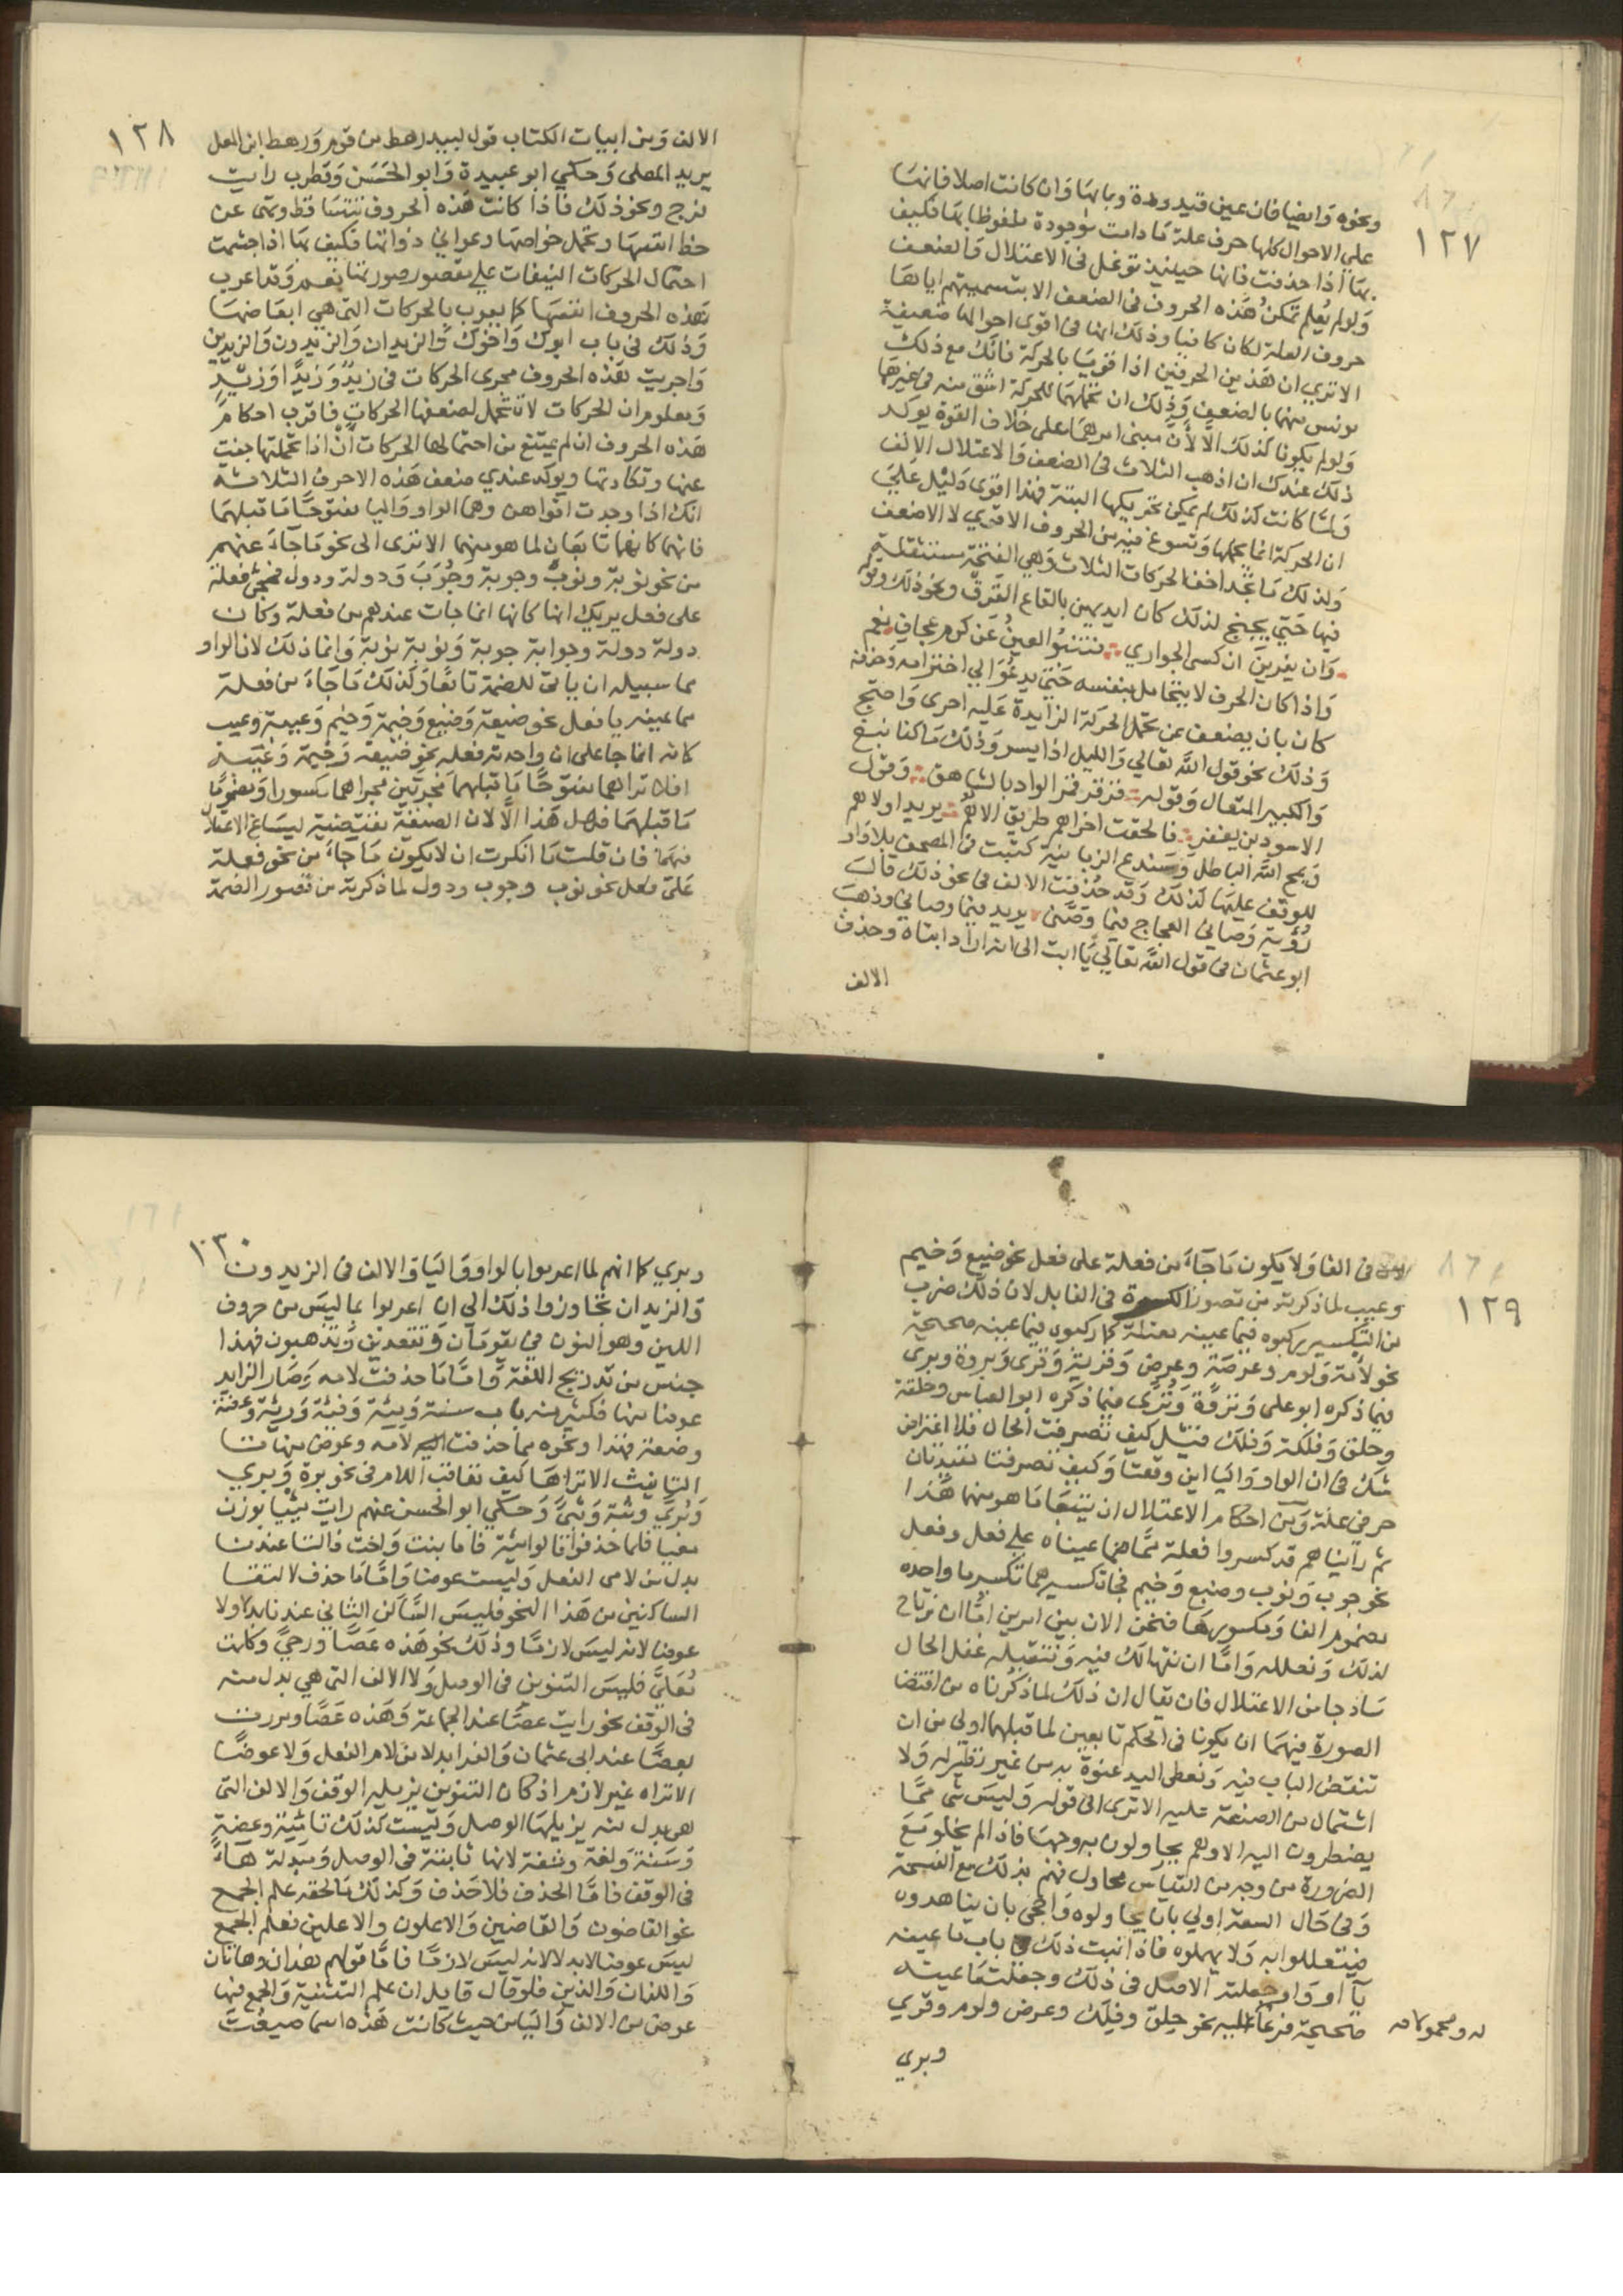 ١٢٧
ونحوه وايضا فان عين قيد وهدة وبابها وان كانت اصلا فانها
علي الاحوال كلها حرف علة ما دامت موجودة ملفوظا بها فكيف
بها اذا حذفت فانها حينئذ توغل في الاعتلال والضعف
ولو لم يُعلم تمكنُ هذه الحروف في الضعف الا بتسميتهم اياها
حروف العلة لكان كافيا وذلك انها في اقوى احوالها ضعيفة
الا تري ان هذين الحرفين اذا قويا بالحركة فانك مع ذلك
مونس منهما بالضعف وذلك ان تحملهما للحركة اشق منه في غيرهما
ولو لم يكونا كذلك الا لأن مبنى امرهما على خلاف القوة يوكد
ذلك عندك ان اذهب الثلاث في الضعف والاعتلال الالف
ولما كانت كذلك لم يمكن تحريكها البتة فهذا اقوى دليل علي
ان الحركة انما يحملها وتسوغ فيه من الحروف الاقوي لا الاضعف
ولذلك ما تجد اخف الحركات الثلاث وهي الفتحة مستثقلة
فيها حتي يجنح لذلك كان ايديهن بالقاع القَرَق ونحو ذلك وقوله
وان يعرين ان كسى الجواري فتنبُو العينُ عَن كرم عجاف نعم
واذا كان الحرف لا يتحامل بنفسه حتى يدعُوَ الي اخترامه وحذفه
كان بان يضعف عن تحمل الحركة الزايدة عليه احرى واحجج
وذلك نحو قول الله تعالي والليل اذا يسر وذلك ما كنا نبغ
والكبير المتعال وقوله قرقر قمر الواد بالشاهق وقول
الاسود بن يعفر فالحقت اخراهم طريق الاهُم يريد اولاهم
ويمح الله الباطل وسندع الزبانية كتبت في المصحف بلا واو
للوقف عليها لذلك وقد حُذفت الالف في نحو ذلك قال
رُؤبة وَصاني العجاج فيما وصَّني يريد فيما وصاني وذهب
ابو عثمان في قول الله تعالي يا ابت الى انه اراد ابتاه وحذف
الالف
١٢٨
الالف ومن ابيات الكتاب قول لبيد رهط من قوم ورهط ابن المعل
يريد المعلى وحكي ابو عبيدة وابو الحَسَن وقطرب رايت
فرج ونحو ذلك فاذا كانت هذه الحروف تتساقط وتهي عن
حفظ انفسها وتحمل خواصها وعواني ذواتها فكيف بها اذا جشمت
احتمال الحركات النيفات علي مقصور صورتها نعم وقد اعرب
بهذه الحروف انفسها كما يعرب بالحركات التي هي ابعاضها
وذلك في باب ابوك واخوك والزيدان والزيدون والزيدين
واجريت هذه الحروف مجرى الحركات في زيدٌ وزيدًا وزيدٍ
ومعلوم ان الحركات لا تتحمل لضعفها الحركات فاقرب احكام
هذه الحروف ان لم يمتنع من احتمالها الحركات أن اذا تحملتها جفت
عنها وتكادتها ويوكد عندي ضعف هذه الاحرف الثلاثه
انك اذا وجدت اقواهن وهما الواو واليا مفتوحًا ما قبلهما
فانهما كانهما تابعان لما هو منهما الا ترى الى نحو ما جاءَ عنهم
من نحو نوبة ونوبٌ وجوبة وجُوَب ودولة ودول فمجئ فعلة
على فعل يريك انها كانها انما جات عندهم من فعلة وكان
دولة دولة وجوابة جوبة ونوبة نوبة وانما ذلك لان الواو
مما سبيله ان ياتي للضمة تابعًا وكذلك ما جاءَ من فعلة
مما عينه يا فعل نحو ضيعة وضيع وخيمة وخيم وعيبة وعيب
كانه انما جا على ان واحدته فعله نحو ضيعه وخيمة وعيبة
افلا تراهما مفتوحًا ما قبلهما مجريين مجراهما مكسورا ومضمومًا
ما قبلهما فهل هذا الَّا لان الصنعة مقتضية ليساغ الاعتلال
فيهما فان قلت ما انكرت ان لا يكون ما جاءَ من نحو فعلة
على فعل نحو نوب وجوب ودول لما ذكرته من تصور الضمة
١٢٩
في الفا ولا يكون ما جاءَ من فعلة على فعل نحو ضيع وخيم
وعيب لما ذكرته من تصور الكسرة في الفا بل لان ذلك ضرب
من التكسير ركبوه فيما عينه معتلة كما ركبوه فيما عينه صحيحة
نحو لامة ولوم وعرصة وعرص وقرية وقرى وبروة وبرى
فيما ذكره ابو على ونزوة ونزى فيما ذكره ابو العباس وحلقة
وحلق وفلكة وفلك قيل كيف تصرفت الحال فلا اعتراض
شك في ان الواو واليا اين وقعتا وكيف تصرفتا تفيدان
حرفي علة ومن احكام الاعتلال ان يتبعا ما هو منهما هذا
ثم رايناهم قد كسروا فعلة مما هما عيناه علي فعل وفعل
نحو جوب ونوب وضيع وخيم فجا تكسيرهما تكسير ما واحده
مضموم الفا ومكسورها فنحن الان بين امرين امَّا ان نرتاح
لذلك ونعلله وامَّا ان نتهالك فيه ونتقبله غفل الحال
ساذجا من الاعتلال فان يقال ان ذلك لما ذكرناه من اقتضا
الصورة فيهما ان يكونا في الحكم تابعين لما قبلهما اولي من ان
تنقض الباب فيه وتعطى اليد عنوة به من غير نظير له ولا
اشتمال من الصنعة عليه الا ترى الى قوله وليس شى ممَّا
يضطرون اليه الا وهم يحاولون به وجها فاذا لم يخلو مع
الضرورة من وجه من القياس محاول فهم بذلك مع الفسحة
وفى حال السعة اولي بان يحاولوه واحجي بان يناهدوه
فيتعللوا به ولا يهملوه فاذا ثبت ذلك في باب ما عينه
يآ او واو جعلته الاصل في ذلك وجعلت ما عينه
صحيحة فرعا له ومحمولا عليه نحو حلق وفلك وعرص ولوم وقري
وبري
١٣٠
وبري كما انهم لما اعربوا بالواو واليا والالف في الزيدون
والزيدان تجاوزوا ذلك الي ان اعربوا بما ليس من حروف
اللين وهو النون في يقومان وتقعدين وتذهبون فهذا
جنس من تدريج اللغة وامَّا ما حذفت لامه وصار الزايد
عوضا منها فكثير منه باب سنة ومية وفئة ورئة وعضة
وضعة فهذا ونحوه مما حذفت لامه وعوض منها تا
التانيث الا تراها كيف تعاقب اللام في نحو برة وبري
وثبة وثبى وحكي ابو الحسن عنهم رايت مئيا بوزن
معيا فلما حذفوا قالوا مئة فاما بنت واخت فالتا عندنا
بدل من لامى الفعل وليست عوضا وامَّا ما حذف لالتقا
الساكنين من هذا النحو فليس الساكن الثاني عندنا بدلا ولا
عوضا لانه ليس لازما وذلك نحو هذه عصًا ورحيً وكلمت
مُعليً فليس التنوين في الوصل ولا الالف التي هي بدل منه
في الوقف نحو رايت عصَا عند الجماعة وهذه عصًا ومررت
بعصًا عند ابي عثمان والفرا بدلا من لام الفعل ولا عوضًا
الا تراه غير لازم اذ كان التنوين يزيله الوقف والالف التي
هي بدل منه يزيلها الوصل وليست كذلك تا مئية وعضة
وسنة ولغة وشفة لانها ثابتة في الوصل ومبدلة هاءً
في الوقف فامَّا الحذف فلا حذف وكذلك ما لحقه علم الجمع
نحو القاضون والقاضين والاعلون والاعلين فعلم الجمع
ليس عوضا لا بدلا لانه ليس لازمًا فامَّا قولهم هذان وهاتان
واللذان والذين فلو قال قايل ان علم التثنية والجمع فيها
عوض من الالف واليا من حيث كانت هذه اسما صيغت